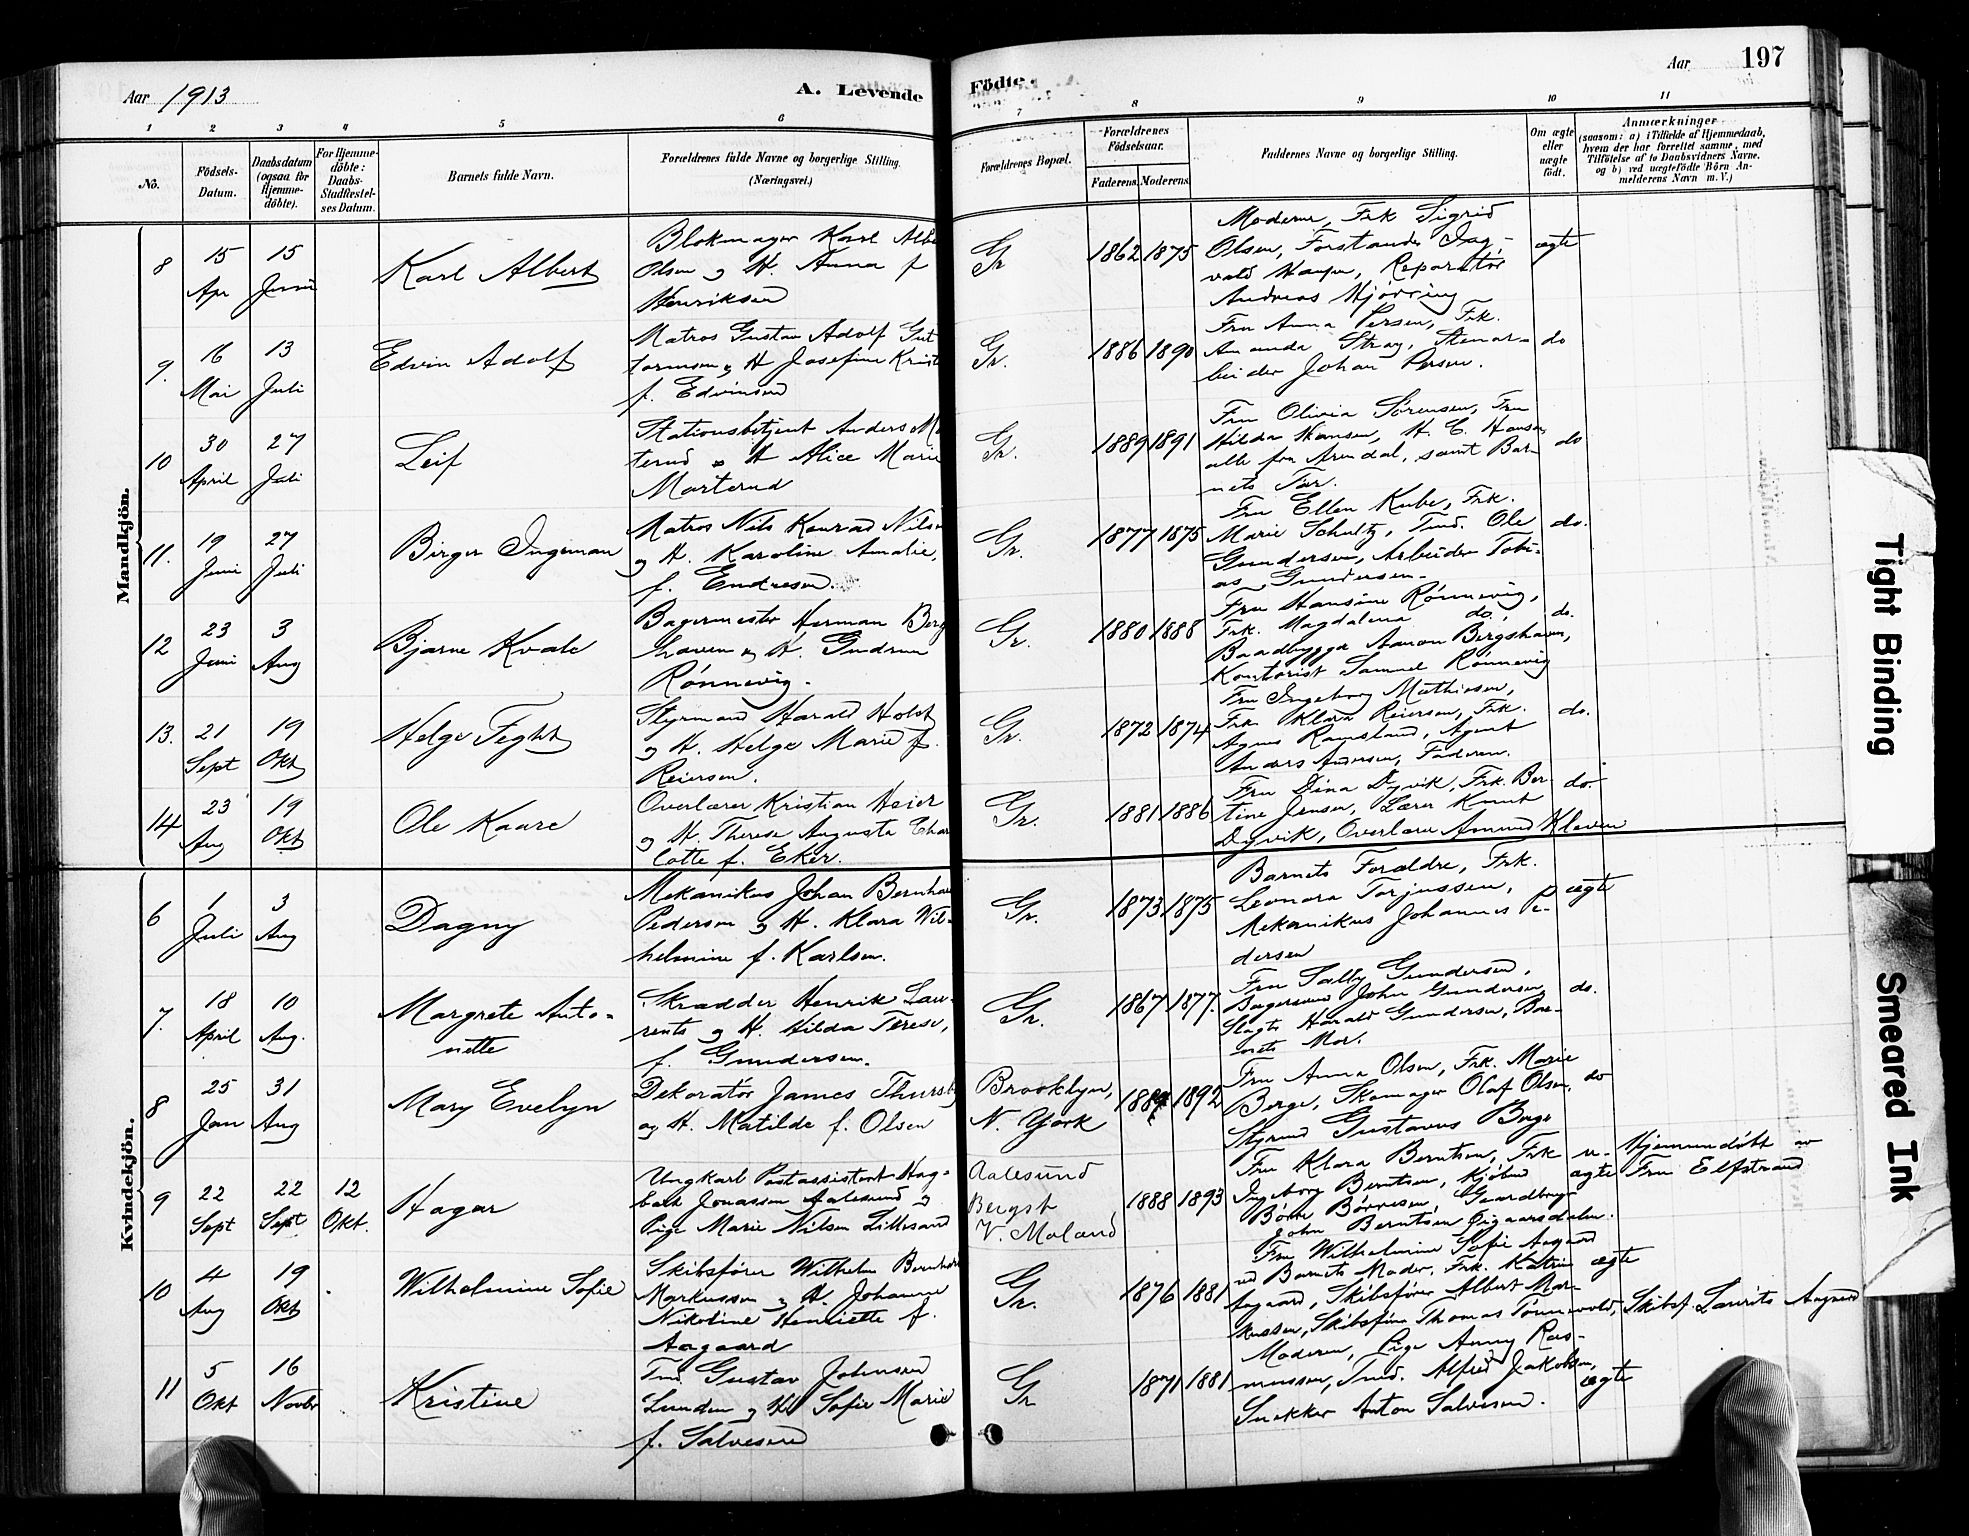 Aar 1913
A. Levende
Födte.
Aar
197
1 2 3 4 5 6
7 8 9 10 11
No.
Födsels-
Datum.
Daabsdatum
(ogsaa for
Hjemme-
döbte).
For Hjemme-
döbte:
Daabs-
Stadfæstel-
ses Datum.
Barnets fulde Navn.
Forældrenes fulde Navne og borgerlige Stilling.
(Næringsvei.)
Forældrenes Bopæl.
Forældrenes
Födselsaar.
Faderens.
Moderens.
Faddernes Navne og borgerlige Stilling.
Om ægte
eller
uægte
födt.
Anmærkninger
(saasom: a) i Tilfælde af Hjemmedaab,
hvem der har forrettet samme, med
Tilföielse af to Daabsvidners Navne,
og b) ved uægtefödte Börn An-
melderens Navn m. V.)
Mandkjön.
8
15
Apr
15
Juni
Karl Albert
Blokmager Karl Albe
Olsen og H. Anna f
Henriksen
Gr
1862
1875
Moderen, Frk Sigrid
Olsen, Forstander Dag-
vald Haugen, Reparatør
Andreas Hjørring
ægte
9.
16
Mai
13
Juli
Edvin Adolf
Matros Gustav Adolf Gut
tormsen og H Josefine Krist
f. Edvinsen
Gr.
1886
1890
Fru Anna Persen, Frk.
Amanda Stray, Stenar-
beider Johan Persen.
do
10
30
April
27
Juli
Leif
Stationsbetjent Anders M
terud og H Alice Marie
Marterud
Gr.
1889
1891
Fru Olivia Sørensen, Fru
Hilda Hansen, H. C. Hansen
alle fra Arendal, samt Bar-
nets Far.
do
11.
19
Juni
27
Juli
Birger Ingeman
Matros Nils Konrad Nils
og H. Karoline Amalie,
f. Endresen.
Gr.
1877
1875
Fru Ellen Kube, Frk.
Marie Schultz, Tmd. Ole
Gundersen, Arbeider Tobi-
as Gundersen.
do.
12
23
Juni
3
Aug
Bjarne Kvale
Bagermester Herman Berg
haven og H. Gudrun
Rønnevig.
Gr.
1880
1888
Fru Hansine Rønnevig,
Frk. Magdalena do.
Baadbygger Aanon Bergshaven,
Kontorist Samuel Rønnevig
do.
13.
21
Sept
19
Okt
Helge Feght
Styrmand Harald Holst
og H. Helga Marie f.
Reiersen.
Gr.
1872
1874
Fru Ingeborg Mathiesen,
Frk Klara Reiersen, Frk.
Agnes Ramsland, Agent
Anders Andersen, Faderen.
do.
14
23
Aug
19
Okt
Ole Kaare
Overlærer Kristian Heier
og H. Therese Augusta Char
lotte f. Eker.
Gr.
1881
1886
Fru Dina Dyvik, Frk. Ber-
tine Jensen, Lærer Knut
Dyvik, Overlærer Amund Kleven
do.
Kvindekjön.
6
1
Juli
3
Aug
Dagny
Mekanikus Johan Bernhar
Pedersen og H. Klara Wil-
helmine f. Karlsen.
Gr.
1873
1875
Barnets Forældre, Frk.
Leonora Torjussen,
Mekanikus Johannes Pe-
dersen
ægte
7.
18
April
10
Aug.
Margrete Anto-
nette
Skrædder Henrik Lau-
rents og H. Hilda Terese,
f. Gundersen.
Gr.
1867
1877.
Fru Sally Gundersen,
Bagersvend John Gundersen,
Slagter Harald Gundersen, Bar-
nets Mor.
do.
8
25
Jan
31
Aug
Mary Evelyn
Dekoratør James Thursby
og H. Matilde f. Olsen
Brooklyn,
N. York
1887
1892
Fru Anna Olsen, Frk. Marie
Berge, Skomager Olaf Olsen,
Styrmd Gustavus Berge
do
9
22
Sept
22
Sept
12
Okt.
Hagar
Ungkarl Postassistent Hag-
bart Jonassen Aalesund og
Pige Marie Nilsen Lillesand
Aalesund
Bergst
V. Moland
1888
1893
Fru Klara Berntsen, Frk
Ingeborg Berntsen, Kjøbmd
Børre Børresen, Gaardbruger
John Berntsen Øigaarsdalen.
u-
ægte
Hjemmedøbt av
Fru Elfstrand
10
4
Aug
19
Okt
Wilhelmine Sofie
Skibsfører Wilhelm Bernhard
Markussen og H. Johanne
Nikoline Henriette f.
Aagaard
Gr.
1876
1881
Fru Wilhelmine Sofie Aagaard
ved Barnets Moder, Frk. Katrine
Aagaard, Skibsfører Albert Mar-
kussen, Skibsfører Thomas Tønnevold, Skibsf. Laurits Aagaard
ægte
11
5
Okt
16
Novbr
Kristine
Tmd Gustav Johnsen
Lunden og H Sofie Marie
f. Salvesen
Gr
1871
1881
Moderen, Pige Anny Ras-
mussen, Tmd. Alfred Jakobsen,
Snekker Anton Salvesen.
ægte
Tight Binding
Smeared Ink